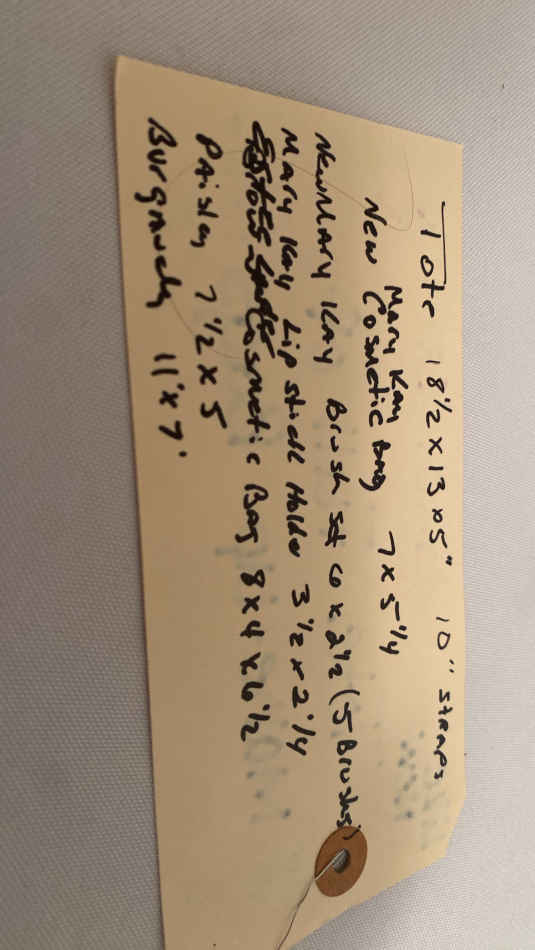 Tote 18 1/2 x 13 x 5" 10" straps
New Mary Kay
Cosmetic Bag 7 x 5 1/4
New Mary Kay Brush set 6 x 2 1/2 (5 Brushes)
Mary Kay Lip stick Holder 3 1/2 x 2 1/4
Cosmetic Bag 8 x 4 x 6 1/2
Paisley 7 1/2 x 5
Burgundy 11 x 7